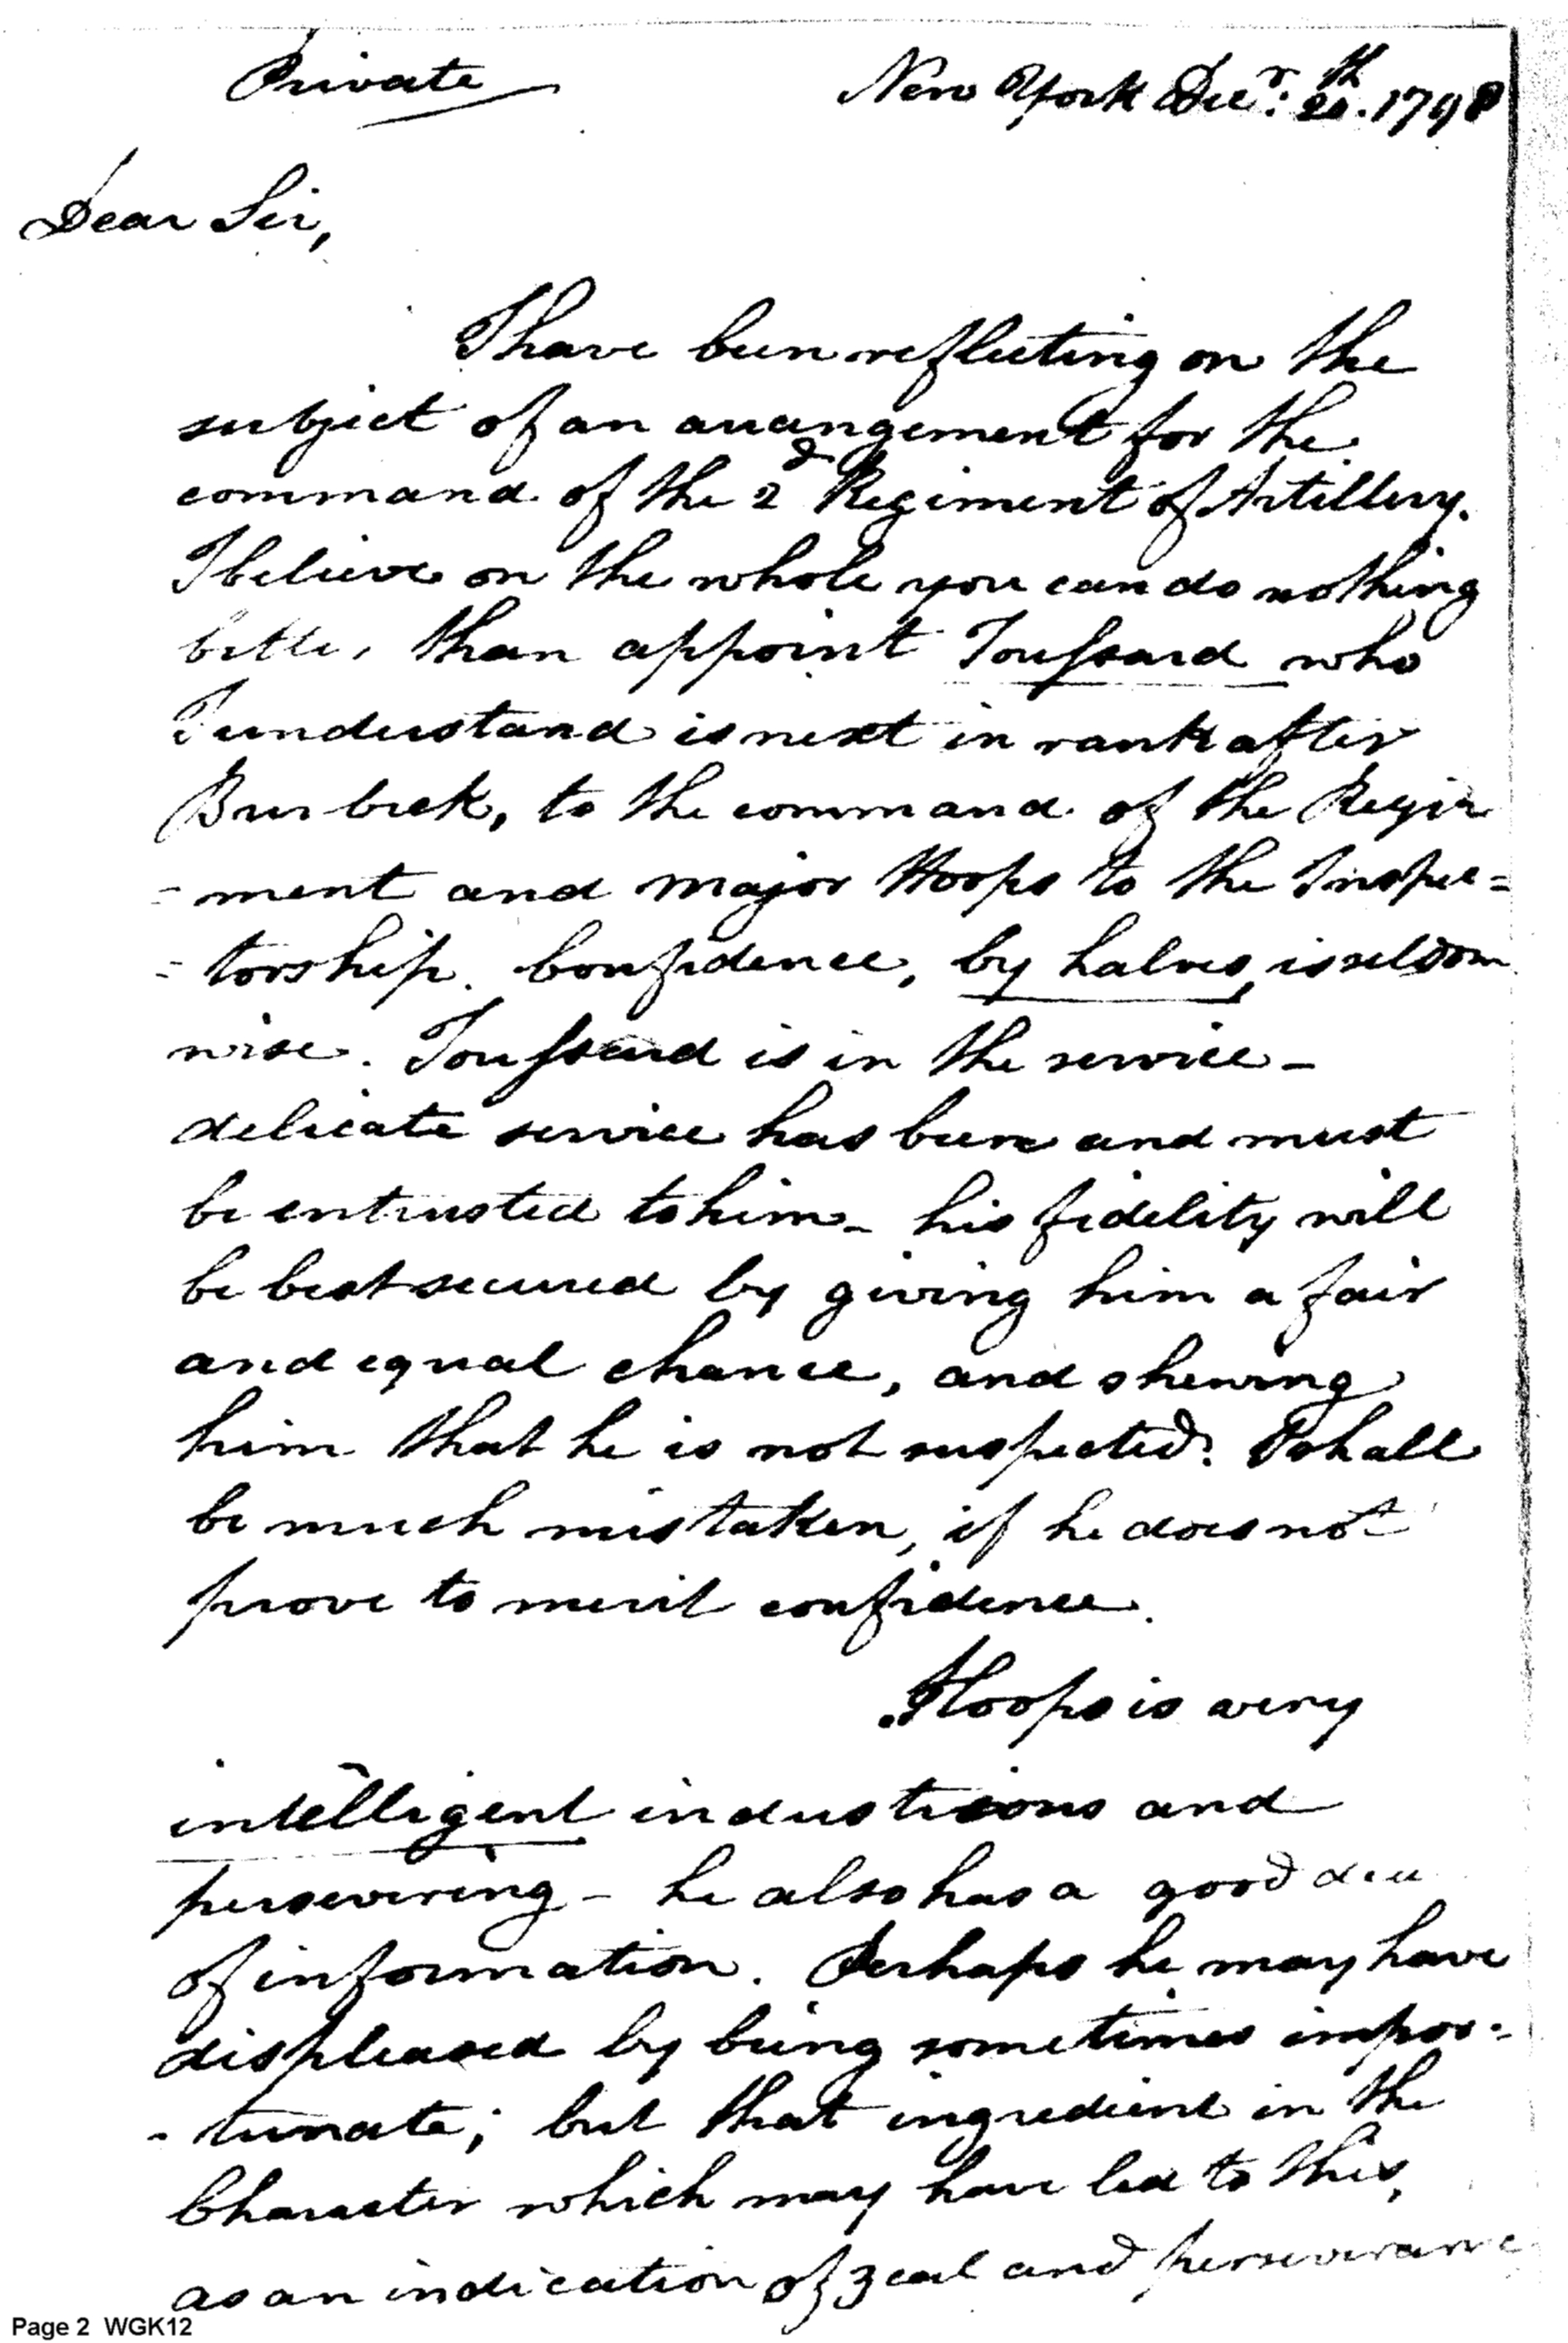 Private
New York Decr. 20th. 1798
Dear Sir,
I have been reflecting on the
subject of an arrangement for the
command of the 2d Regiment of Artillery.
I believe on the whole you can do nothing
better than appoint Toussard who
I understand is next in rank after
Burbeck, to the command of the Regi
-ment and Major Hoops to the Inspec=
=torship. Confidence, by halves, is seldom
wise. Toussard is in the service—
delicate service has been and must
be entrusted to him— his fidelity will
be best secured by giving him a fair
and equal chance, and shewing
him that he is not suspected. I shall
be much mistaken, if he does not
prove to merit confidence.
Hoops is very
intelligent industrious and
persevering— he also has a good deal
of information. Perhaps he may have
displeased by being sometimes impor=
-tunate; but that ingredient in the
Character which may have led to this,
as an indication of zeal and perseverance
Page 2 WGK12